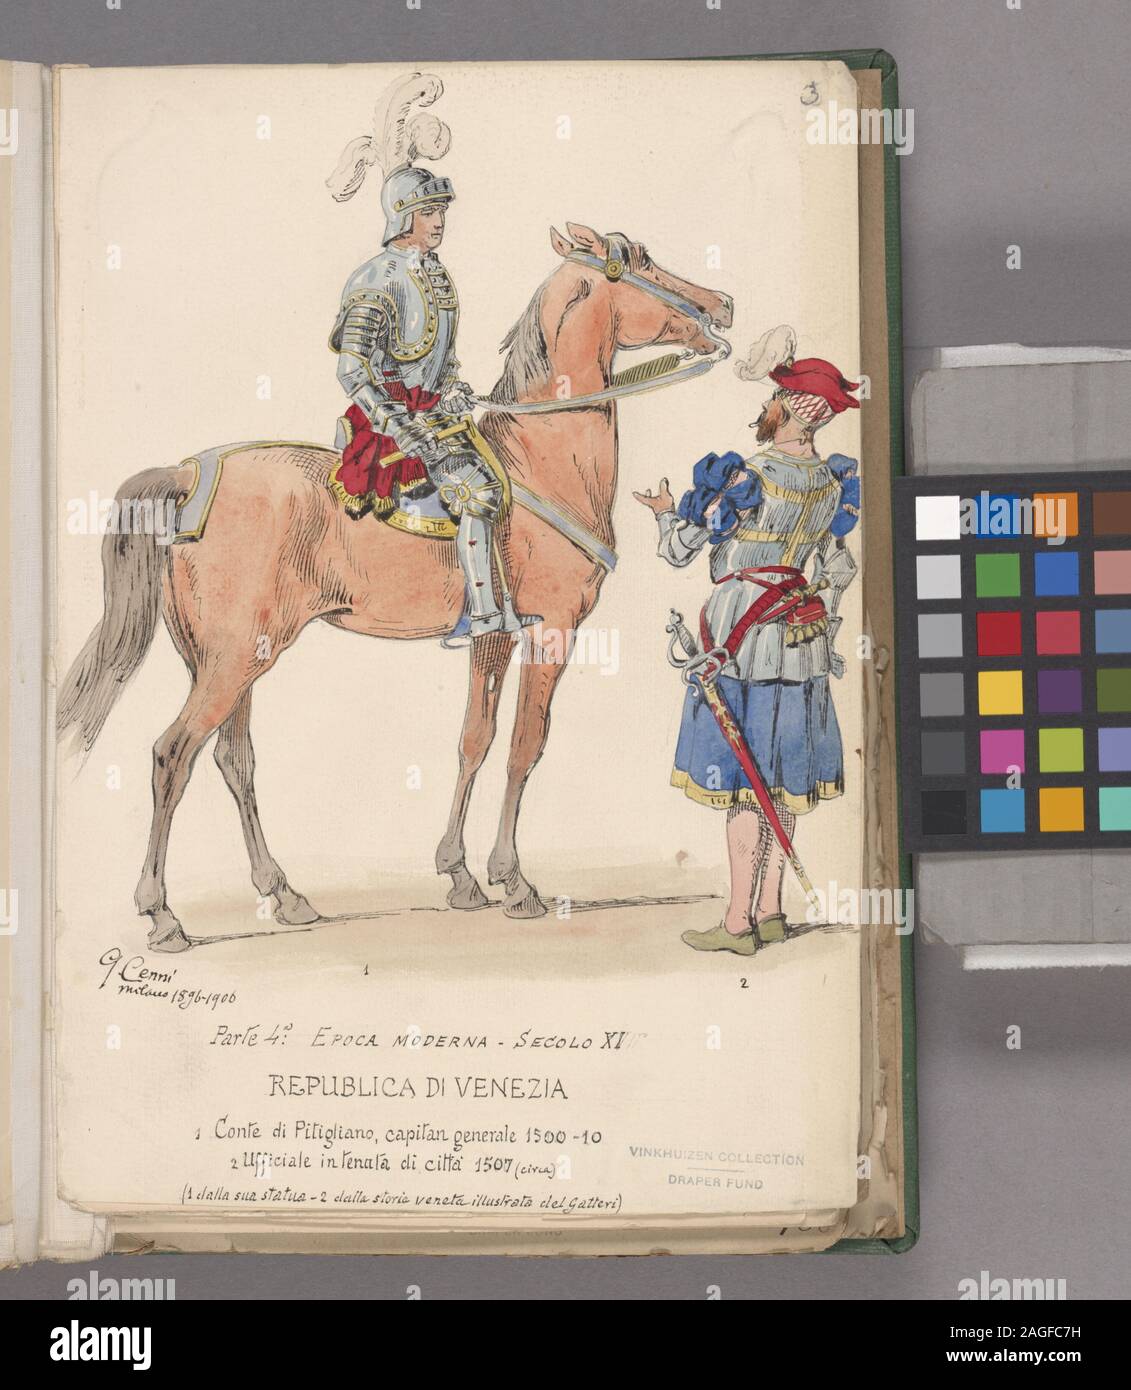 3
Q Cenni
Milano 1896-1906
1
2
Parte 4ª. EPOCA MODERNA - SECOLO XVI
REPUBLICA DI VENEZIA
1 Conte di Pitigliano, capitan generale 1500-10
2 Ufficiale in tenuta di città 1507 (circa)
(1 dalla sua statua - 2 dalla storia veneta illustrata del Gatteri)
VINKHUIZEN COLLECTION
DRAPER FUND
alamy
Image ID: 2AGFC7H
www.alamy.com